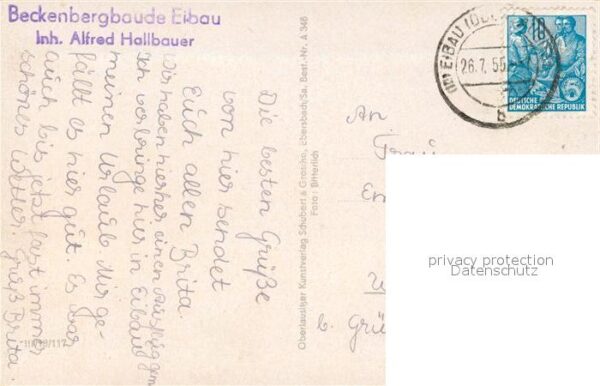 Beckenbergbaude Eibau
Inh. Alfred Hallbauer
Die besten Grüße
von hier sendet
Euch allen Brita.
Wir haben hierher einen Ausflug gem.
Ich verbringe hier in Eibau
meinen Urlaub. Mir ge-
fällt es hier gut. Es war
auch bis jetzt fast immer
schönes Wetter. Gruß Brita.
Oberlausitzer Kunstverlag Schubert & Grosche, Ebersbach/Sa. Best.-Nr. A 346
Foto: Bitterlich
EIBAU
26.7.56
b
10
DEUTSCHE
DEMOKRATISCHE REPUBLIK
An
Frau
b. Grü
privacy protection
Datenschutz